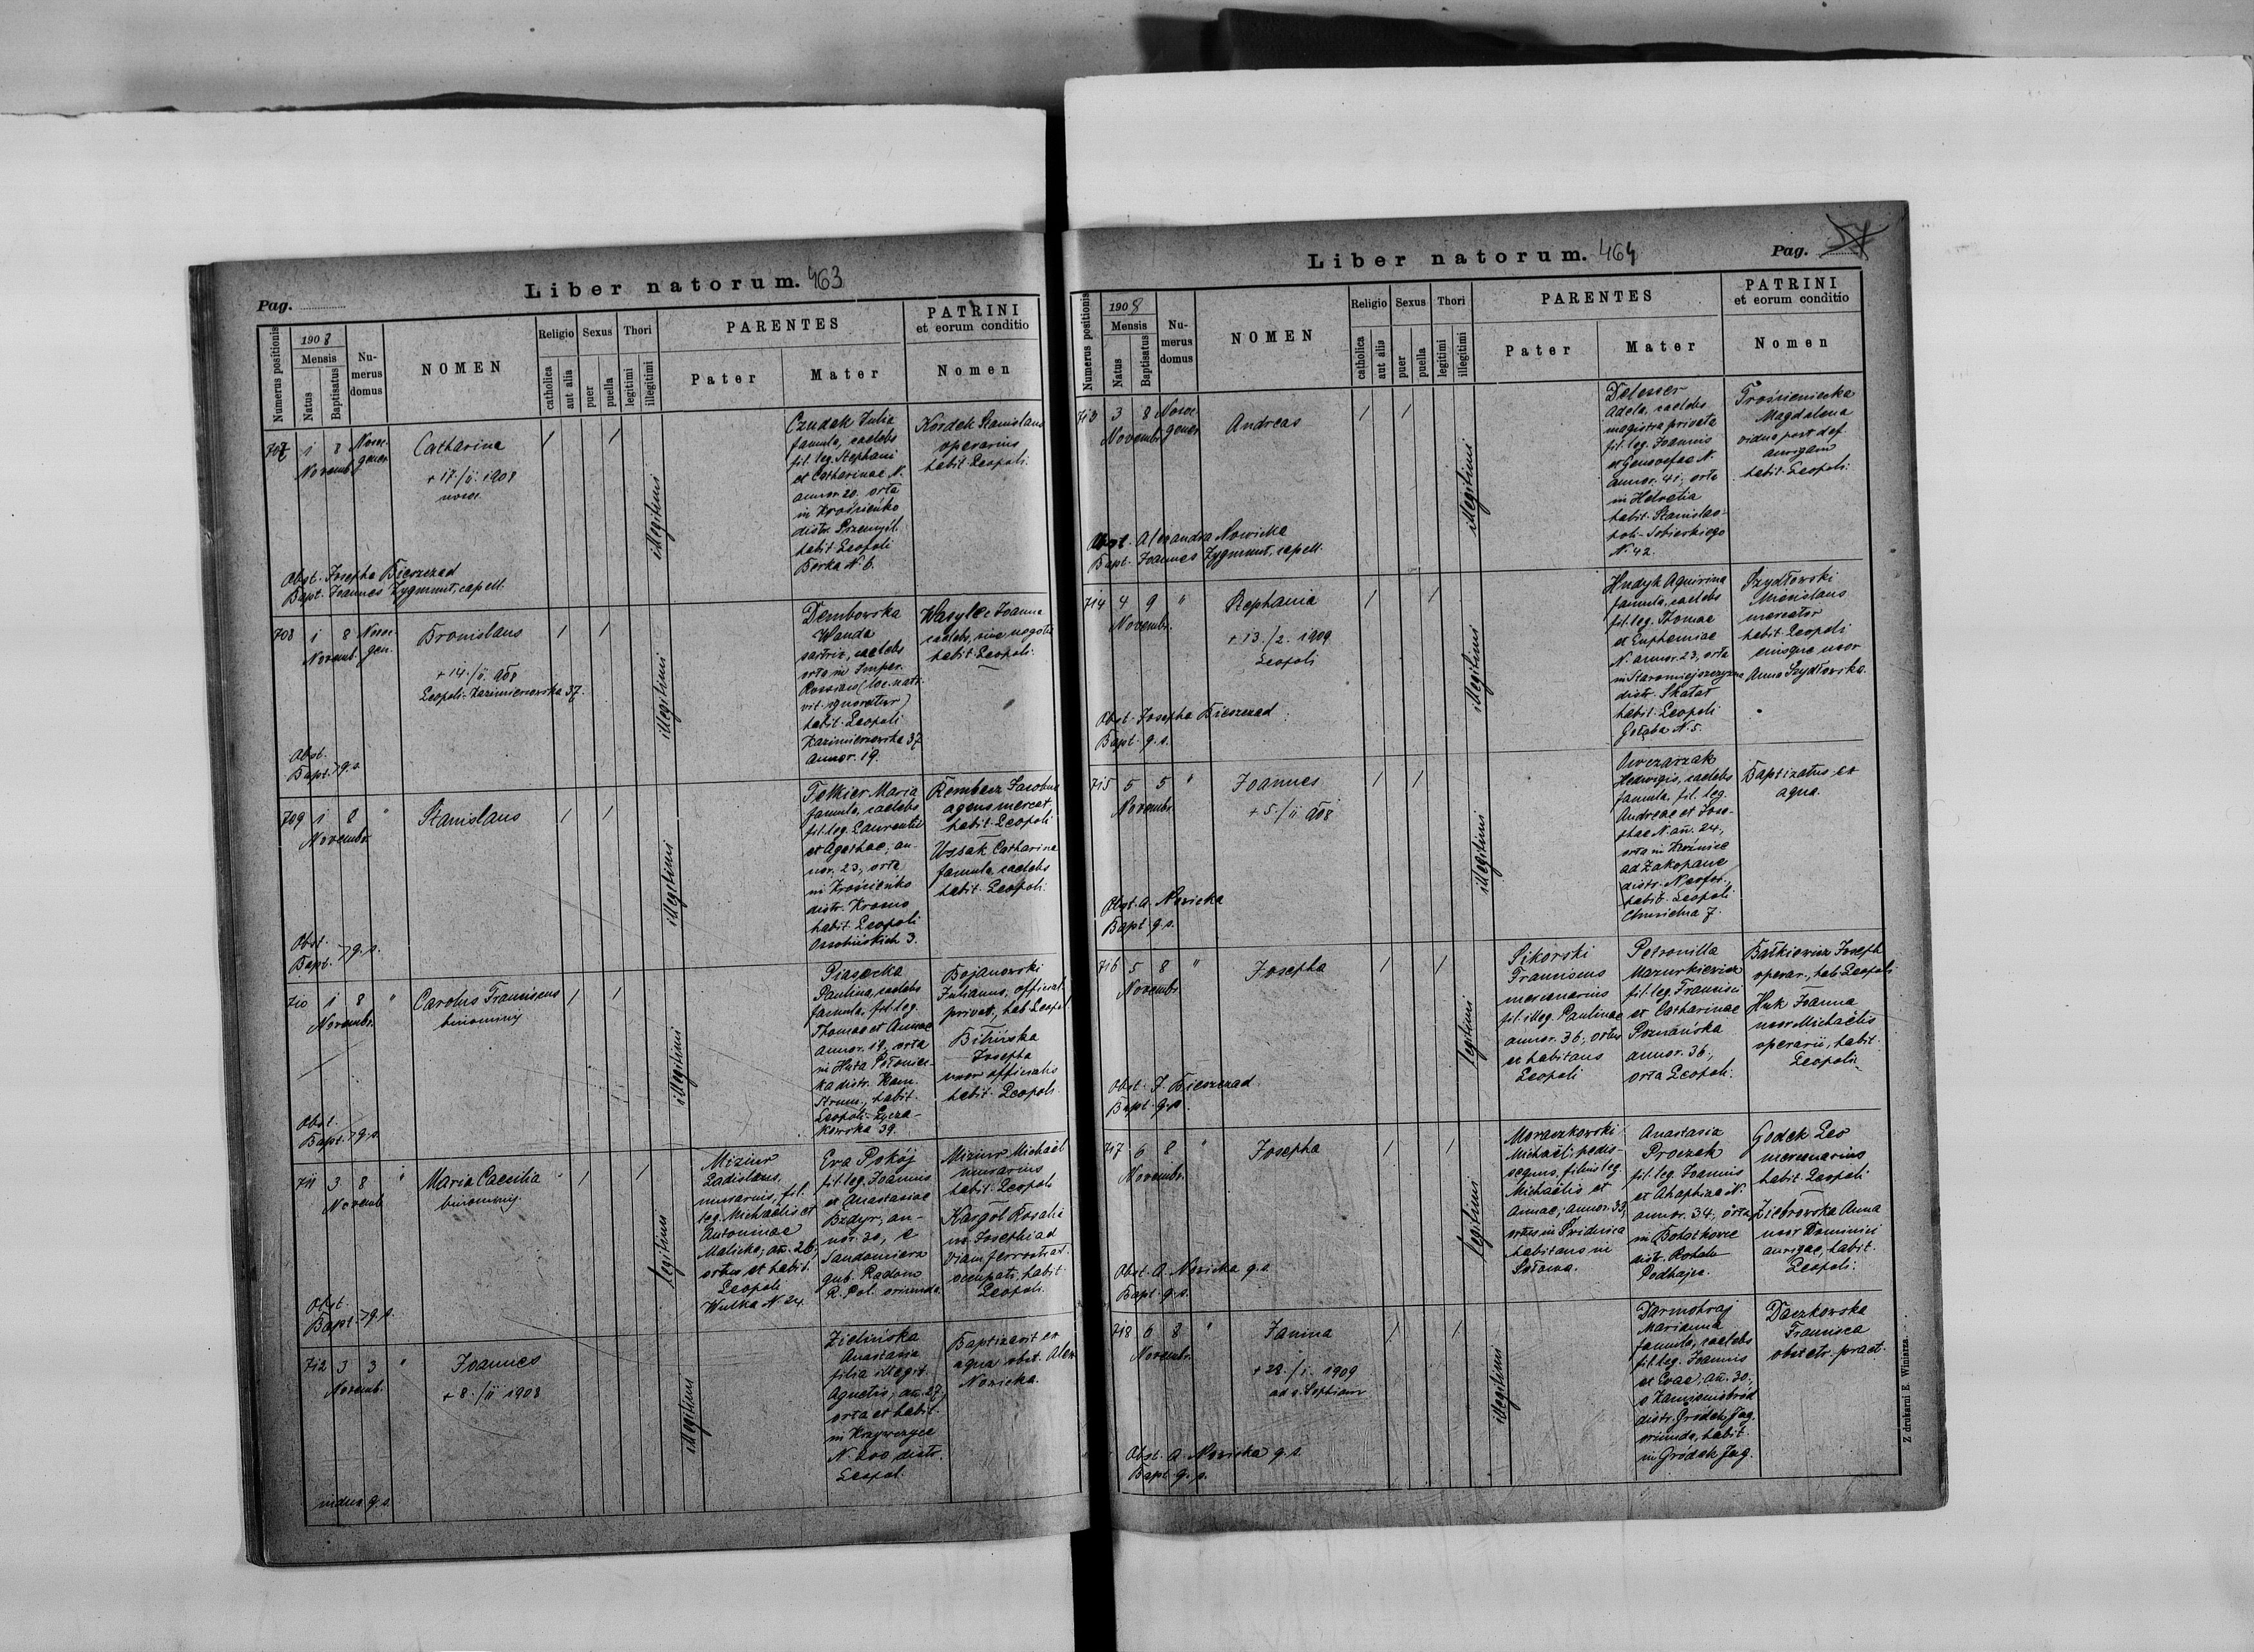 Pag.
Liber natorum. 463
Numerus positionis
1908
Mensis
Natus
Baptisatus
Nu-
merus
domus
NOMEN
Religio
catholica
aut alia
Sexus
puer
puella
Thori
legitimi
illegitimi
PARENTES
Pater
Mater
PATRINI
et eorum conditio
Nomen
707
1
8
Novemb.
Nosoc.
gener.
Catharina
+ 17./ii. 1908
nosoc.
illegitimi
Czudak Julia
famula, caelebs
fil. leg. Stephani
et Catharinae N.
annor. 20. orta
in Krościenko
distr. Przemyśl.
habit. Leopoli
Berka N. 6.
Kordek Stanislaus
operarius
habit. Leopoli.
Obst. Josepha Bieszczad
Bapt. Joannes Zygmunt, capell.
708
1
8
Novemb.
Nosoc.
gen.
Bronislaus
+ 14./ii. 908
Leopoli-Kazimierowska 37.
illegitimi
Dembowska
Wanda
sartrix, caelebs
orta in Imper.
Rossiaco (loc. nati-
vit. ignoratur)
habit. Leopoli
Kazimierowska 37
annor. 19.
Wasylec Joanna
caelebs, sine negotio
habit. Leopoli.
Obst.
Bapt. > q. s.
709
1
8
"
Novembr.
Stanislaus
illegitimi
famula, caelebs
fil. leg. Laurentii
et Agathae, an-
nor. 23, orta
in Krościenko
distr. Krosno
habit. Leopoli
Ossolińskich 3.
Rembesz Jacobus
agens mercat.
habit. Leopoli
Ussak Catharina
famula, caelebs
habit. Leopoli.
Obst.
Bapt. > q. s.
710
1
8
"
Novembr.
Carolus Franciscus
binominis
illegitimi
Piasecka
Paulina, caelebs
famula, fil. leg.
Thomae et Annae
annor. 19. orta
in Huta Połoniec-
ka distr. Kam.
Strum., habit.
Leopoli-Łycza-
kowska 39.
Bojanowski
Julianus, official.
privat., hab. Leopol.
Bilińska
Josepha
uxor officialis
habit. Leopoli.
Obst.
Bapt. > q. s.
711
3
8
"
Novemb.
Maria Caecilia
binominis
legitimi
Miziur
Ladislaus,
murarius, fil.
leg. Michaëlis et
Antoninae
Malicka, an. 26,
ortus et habit.
Leopoli
Wulka N. 24.
Eva Pokój
fil. leg. Joannis
et Anastasiae
Bzdyr, an-
nor. 30, e
Sandomierz
gub. Radom
R. Pol. oriunda
Miziur Michaël
murarius
habit. Leopoli
Kargol Rosalia
ux. Josephi ad
viam ferrostrat.
occupati, habit.
Leopoli.
Obst.
Bapt. > q. s.
712
3
3
"
Novemb.
Joannes
+ 8./ii 1908
illegitimi
Zielińska
Anastasia
filia illegit.
Agnetis, an. 27,
orta et habit.
in Krzywczyce
N. 200, distr.
Leopol.
Baptizavit ex
aqua obst. Alex.
Nowicka.
Liber natorum. 464
Pag.
Numerus positionis
1908
Mensis
Natus
Baptisatus
Nu-
merus
domus
NOMEN
Religio
catholica
aut alia
Sexus
puer
puella
Thori
legitimi
illegitimi
PARENTES
Pater
Mater
PATRINI
et eorum conditio
Nomen
713
3
8
Novembr.
Nosoc.
gener.
Andreas
illegitimi
Delesser
Adela, caelebs
magistra privata
fil. leg. Joannis
et Genovefae N.
annor. 41, orta
in Helvetia
habit. Stanislao-
poli-Sobieskiego
N. 42.
Trościeniecka
Magdalena
vidua post def.
aurigam
habit. Leopoli.
Obst. Alexandra Nowicka
Bapt. Joannes Zygmunt, capell.
714
4
9
"
Novembr.
Stephania
+ 13./2. 1909
Leopoli
illegitimi
Hudyk Aquirina
famula, caelebs
fil. leg. Thomae
et Euphemiae
N. annor. 23, orta
in Staromiejszczyzna
distr. Skałat
habit. Leopoli
Gołąba N. 5.
Szydłowski
Miecislaus
mercator
habit. Leopoli
eiusque uxor
Anna Szydłowska.
Obst. Josepha Bieszczad
Bapt. q. s.
715
5
5
"
Novembr.
Joannes
+ 5./ii 908
illegitimi
Owczarzak
Hedwigis, caelebs
famula, fil. leg.
Andreae et Jose-
phae N. an. 24,
orta in Kuźnice
ad Zakopane
distr. Neofor.,
habit. Leopoli
Chmielna 7.
Baptizatus ex
aqua.
Obst. A. Nowicka
Bapt. q. s.
716
5
8
"
Novembr.
Josepha
legitimi
Sikorski
Franciscus
mercenarius
fil. illeg. Paulinae
annor. 36, ortus
et habitans
Leopoli
Petronilla
Mazurkiewicz
fil. leg. Francisci
et Catharinae
Poznańska
annor. 36,
orta Leopoli.
Bałkiewicz Joseph
operar., hab. Leopoli
Huk Joanna
uxor Michaëlis
operarii, habit.
Leopoli.
Obst. J. Bieszczad
Bapt. q. s.
717
6
8
"
Novembr.
Josepha
legitimi
Moraczkowski
Michaël, pedis-
sequus, filius leg.
Michaëlis et
Annae, annor. 33,
ortus in Świdnica
habitans in
Sołowa.
Anastasia
Proczak
fil. leg. Joannis
et Ahaphiza N.
annor. 34, orta
in Bohatkowce
distr.
Podhajce.
Godek Leo
mercenarius
habit. Leopoli
Ziebrowska Anna
uxor Dominici
aurigae, habit.
Leopoli.
Obst. A. Nowicka q. s.
Bapt. q. s.
718
6
8
"
Novembr.
Janina
+ 28./i. 1909
ad s. Sophiam
illegitimi
Darmohraj
Marianna
famula, caelebs
fil. leg. Joannis
et Evae, an. 30,
e Kamienobród
distr. Gródek Jag.
oriunda, habit.
in Gródek Jag.
Daczkowska
Francisca
obstetr. pract.
Obst. A. Nowicka q. s.
Bapt. q. s.
Z drukarni E. Winiarza.